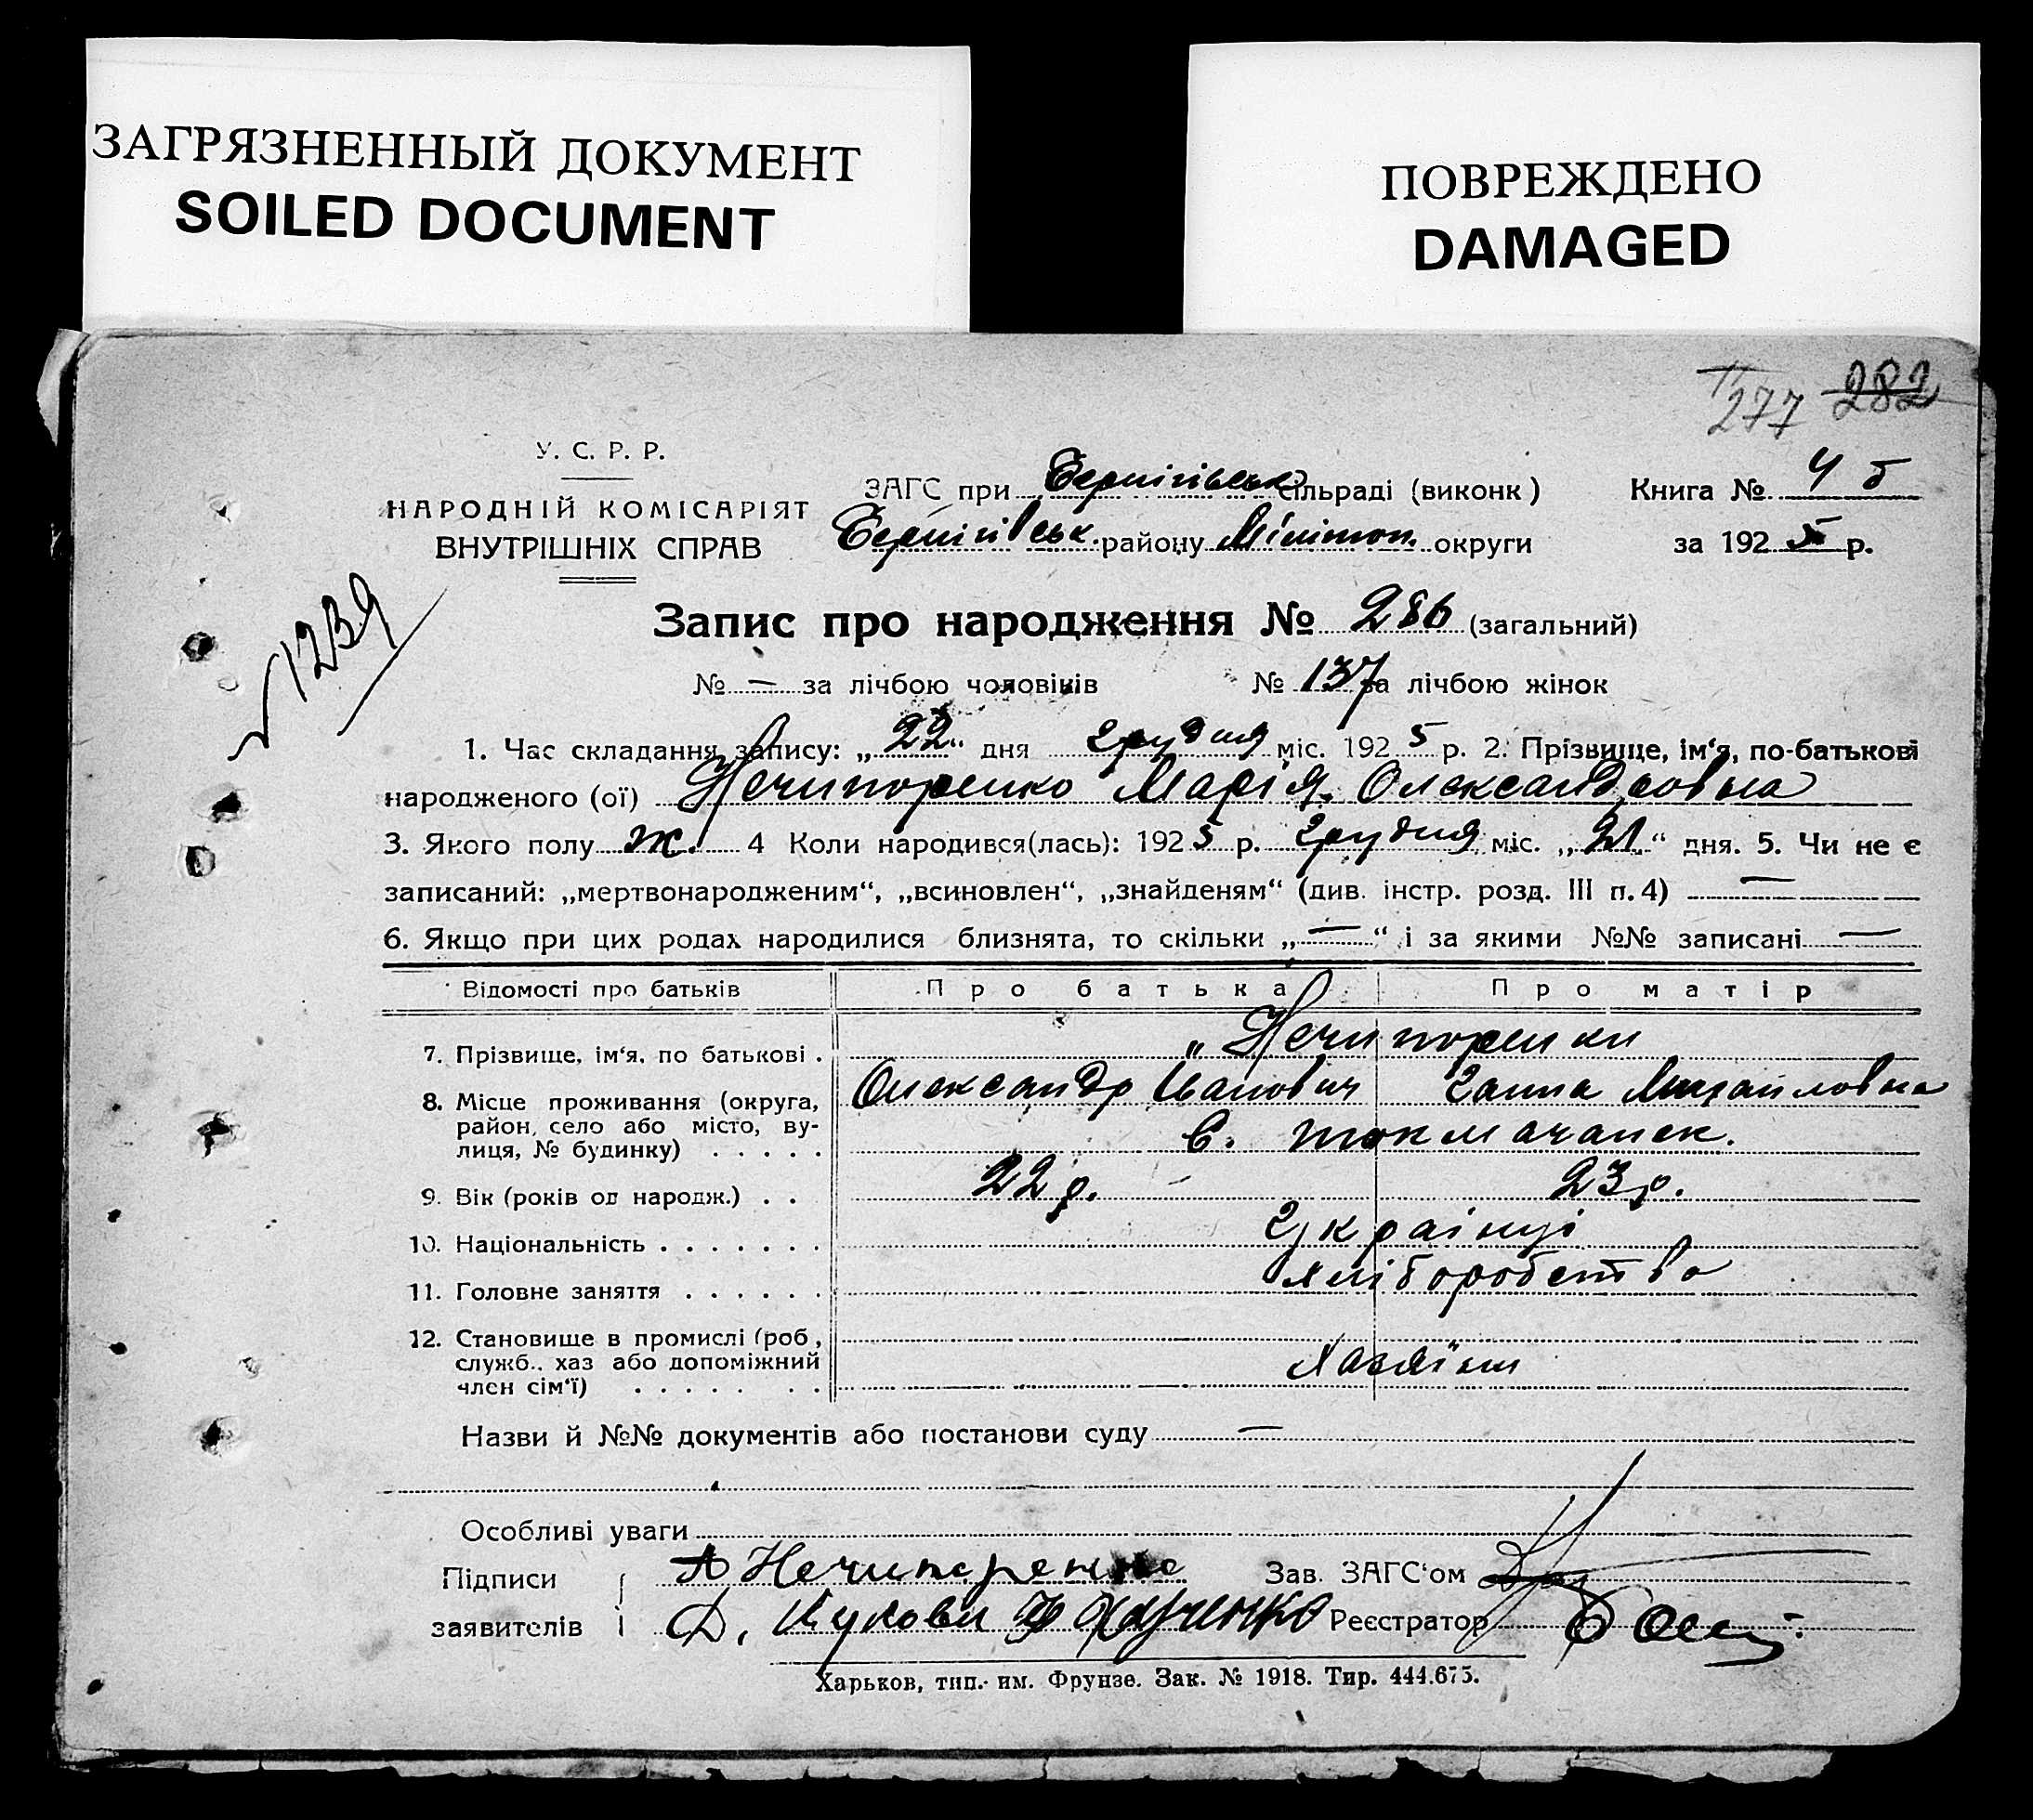 ЗАГРЯЗНЕННЫЙ ДОКУМЕНТ
SOILED DOCUMENT
ПОВРЕЖДЕНО
DAMAGED
277 282
У. С. Р. Р.
НАРОДНІЙ КОМІСАРІЯТ
ВНУТРІШНІХ СПРАВ
ЗАГС при Чернігівськ сільраді (виконк) Книга № 4 б
Чернігівськ. району Мелітоп. округи за 1925 р.
1239
Запис про народження № 286 (загальний)
№ — за лічбою чоловіків № 137 за лічбою жінок
1. Час складання запису: „22“ дня грудня міс. 1925 р. 2. Прізвище, ім‘я, по-батькові
народженого (ої) Нечипоренко Марія Олександровна
3. Якого полу ж. 4 Коли народився(лась): 1925 р. грудня міс. „21“ дня. 5. Чи не є
записаний: „мертвонародженим“, „всиновлен“, „знайденям“ (див. інстр. розд. III п. 4) —
6. Якщо при цих родах народилися близнята, то скільки „—“ і за якими №№ записані —
Відомості про батьків Про батька Про матір
7. Прізвище, ім‘я, по батькові . „ Нечипоренки
Олександр Іванович Ганна Михайловна
8. Місце проживання (округа,
район, село або місто, ву-
лиця, № будинку) . . . . . С. Токмачанск.
9. Вік (років од народж.) . . 22 р. 23 р.
10. Національність . . . . . . . Українці
11. Головне заняття . . . . . . хліборобство
12. Становище в промислі (роб,
служб., хаз або допоміжний
член сім‘ї) . . . . . . . . Хазяїни
Назви й №№ документів або постанови суду —
Особливі уваги
Підписи А Нечипоренко Зав. ЗАГС‘ом
заявителів Реєстратор
Харьков, тип. им. Фрунзе. Зак. № 1918. Тир. 444.675.